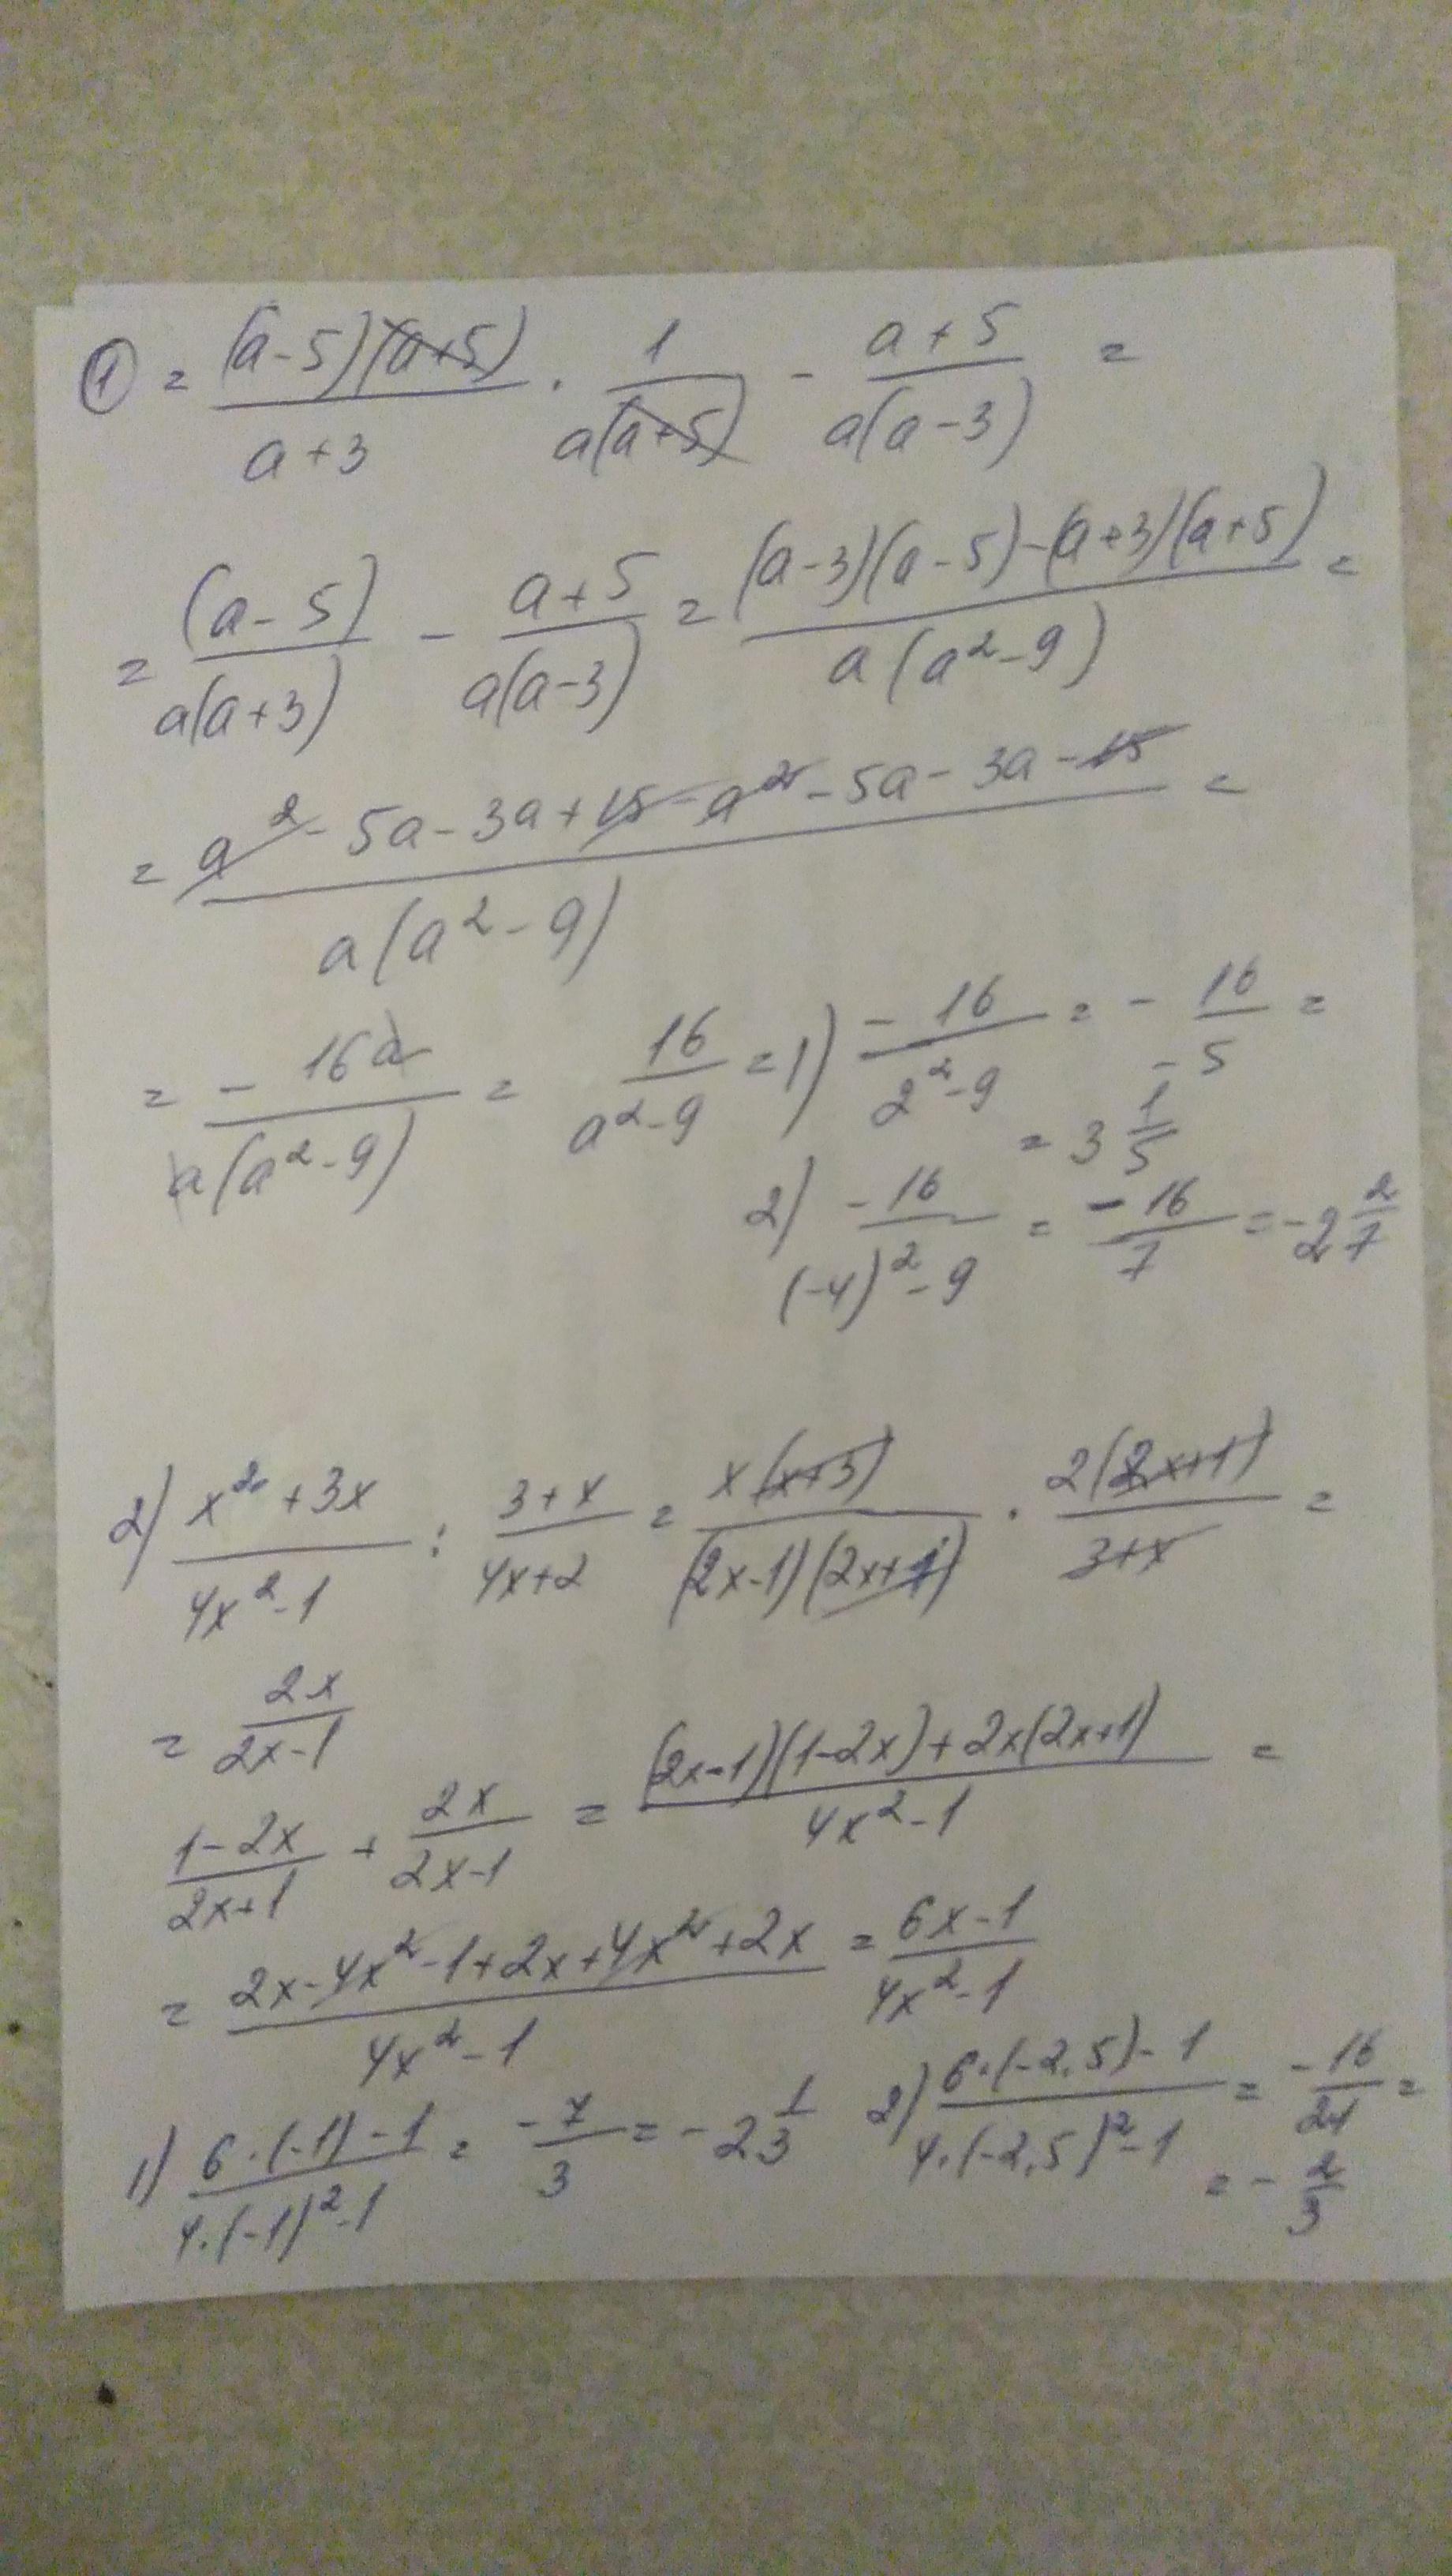 ① = (a-5)(a+5)/a+3 · 1/a(a+5) - a+5/a(a-3) =
= (a-5)/a(a+3) - a+5/a(a-3) = (a-3)(a-5)-(a+3)(a+5)/a(a²-9) =
= a²-5a-3a+15-a²-5a-3a-15/a(a²-9) =
= -16a/a(a²-9) = 16/a²-9 = 1) -16/2²-9 = - 16/-5 =
= 3 1/5
2) -16/(-4)²-9 = -16/7 = -2 2/7
2) x²+3x/4x²-1 : 3+x/4x+2 = x(x+3)/(2x-1)(2x+1) · 2(2x+1)/3+x =
= 2x/2x-1
1-2x/2x+1 + 2x/2x-1 = (2x-1)(1-2x)+2x(2x+1)/4x²-1 =
= 2x-4x²-1+2x+4x²+2x/4x²-1 = 6x-1/4x²-1
1) 6·(-1)-1/4·(-1)²-1 = -7/3 = -2 1/3
2) 6·(-2,5)-1/4·(-2,5)²-1 = -16/24 =
= - 2/3